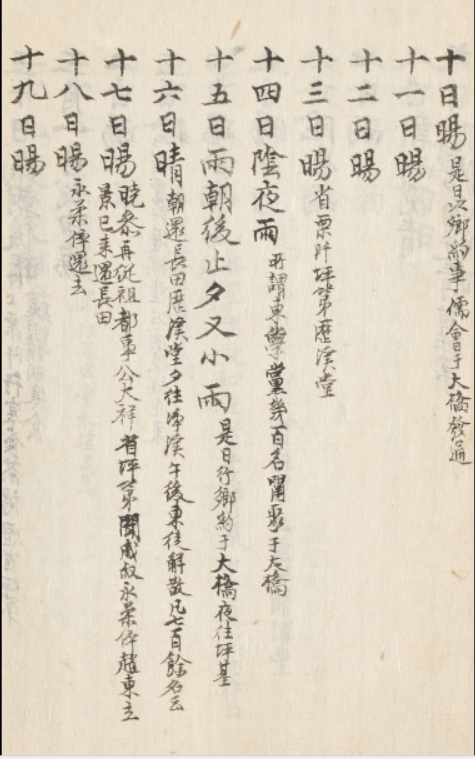 十日暘 是日以鄕約事儒會于大橋發通
十一日暘
十二日暘
十三日暘 省栗阡坪第歷渼堂
十四日陰夜雨 所謂東學黨幾百名閙聚于大橋
十五日雨朝後止夕又小雨 是日行鄕約于大橋夜往坪基
十六日晴 朝還長田歷渼堂夕往渼午後東徒解散凡七百餘名云
十七日暘 晩參再從祖都事公大祥省坪第聞咸叔永柔倅趙東立
景巳來還長田
十八日暘 永柔倅還去
十九日暘